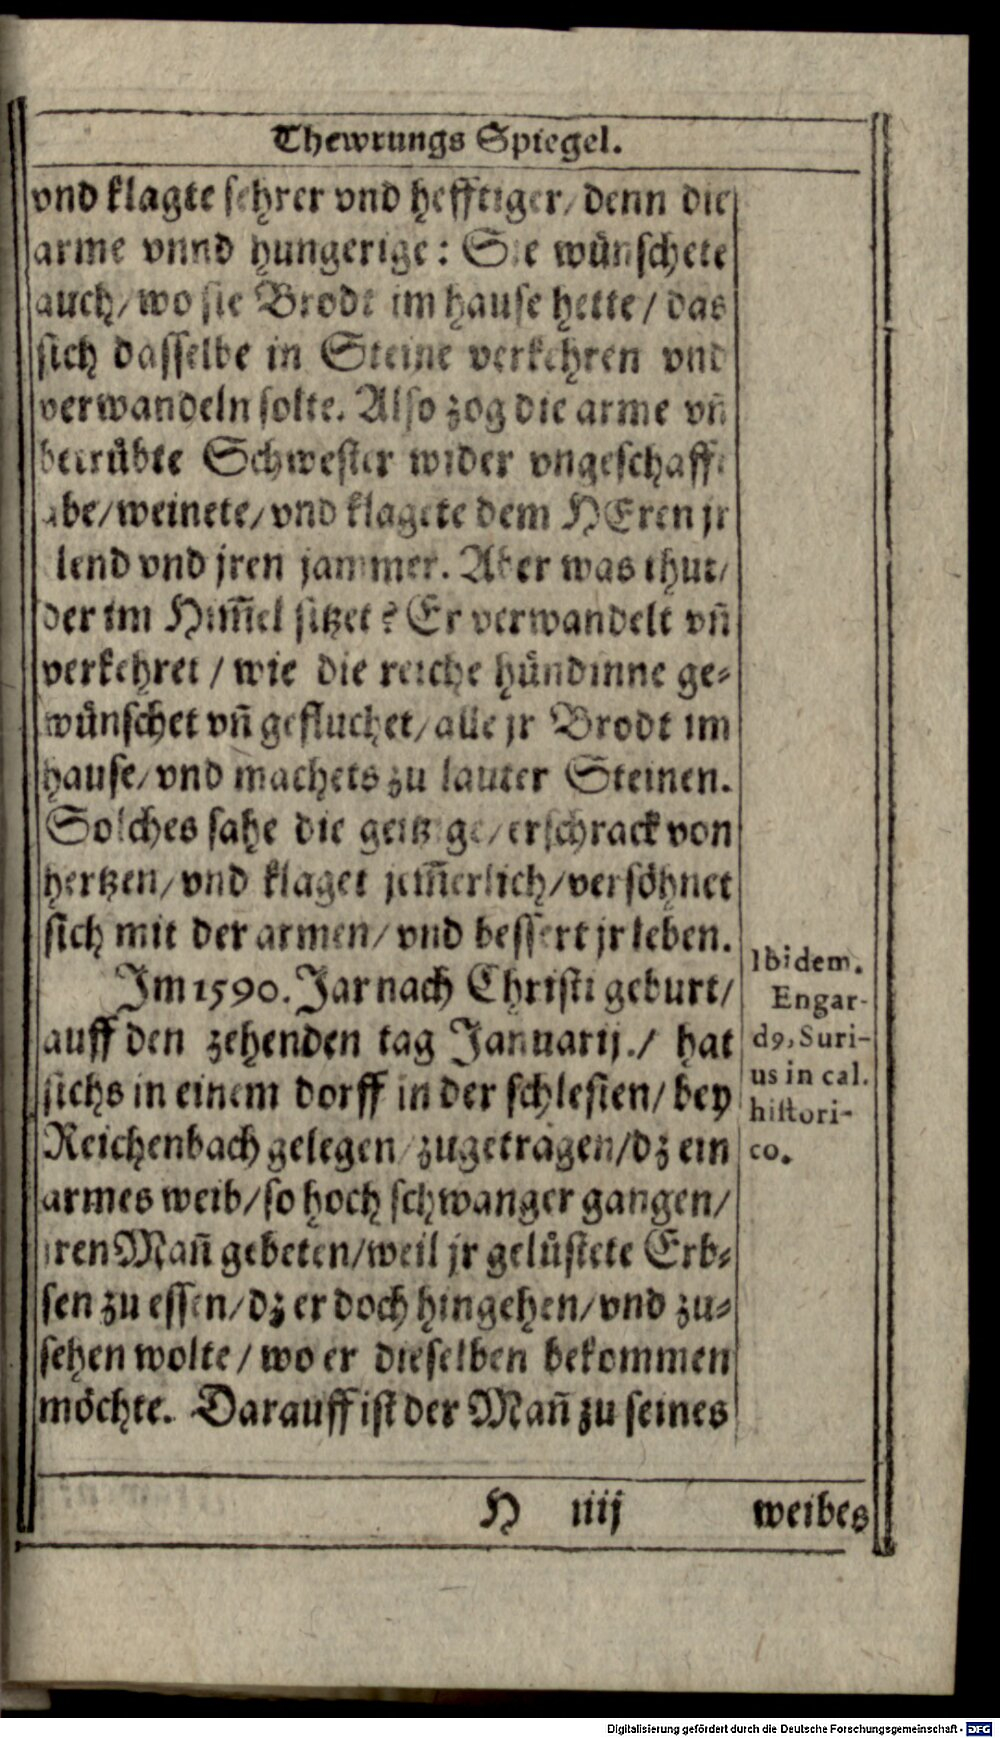 Thewrungs Spiegel.
vnd klagte sehrer vnd hefftiger/ denn die
arme vnnd hungerige: Sie wůnschete
auch/ wo sie Brodt im hause hette/ das
sich dasselbe in Steine verkehren vnd
verwandeln solte. Also zog die arme vn̄
betrůbte Schwester wider vngeschafft
abe/ weinete/ vnd klagete dem HEren jr
lend vnd jren jammer. Aber was thut/
der im Him̄el sitzet? Er verwandelt vn̄
verkehret / wie die reiche hůndinne ge-
wůnschet vn̄ gefluchet/ alle jr Brodt im
hause/ vnd machets zu lauter Steinen.
Solches sahe die geitzige/ erschrack von
hertzen/ vnd klaget jem̄erlich/ versöhnet
sich mit der armen/ vnd bessert jr leben.
Im 1590. Jar nach Christi geburt/
auff den zehenden tag Januarij./ hat
sichs in einem dorff in der schlesien/ bey
Reichenbach gelegen/ zugetragen/ dz ein
armes weib/ so hoch schwanger gangen/
jren Man̄ gebeten/ weil jr gelůstete Erb-
sen zu essen/ dz er doch hingehen/ vnd zu-
sehen wolte/ wo er dieselben bekommen
möchte. Darauff ist der Man̄ zu seines
Ibidem.
Engar-
d9, Suri-
us in cal.
histori-
co.
H iiij weibes
Digitalisierung gefördert durch die Deutsche Forschungsgemeinschaft - DFG